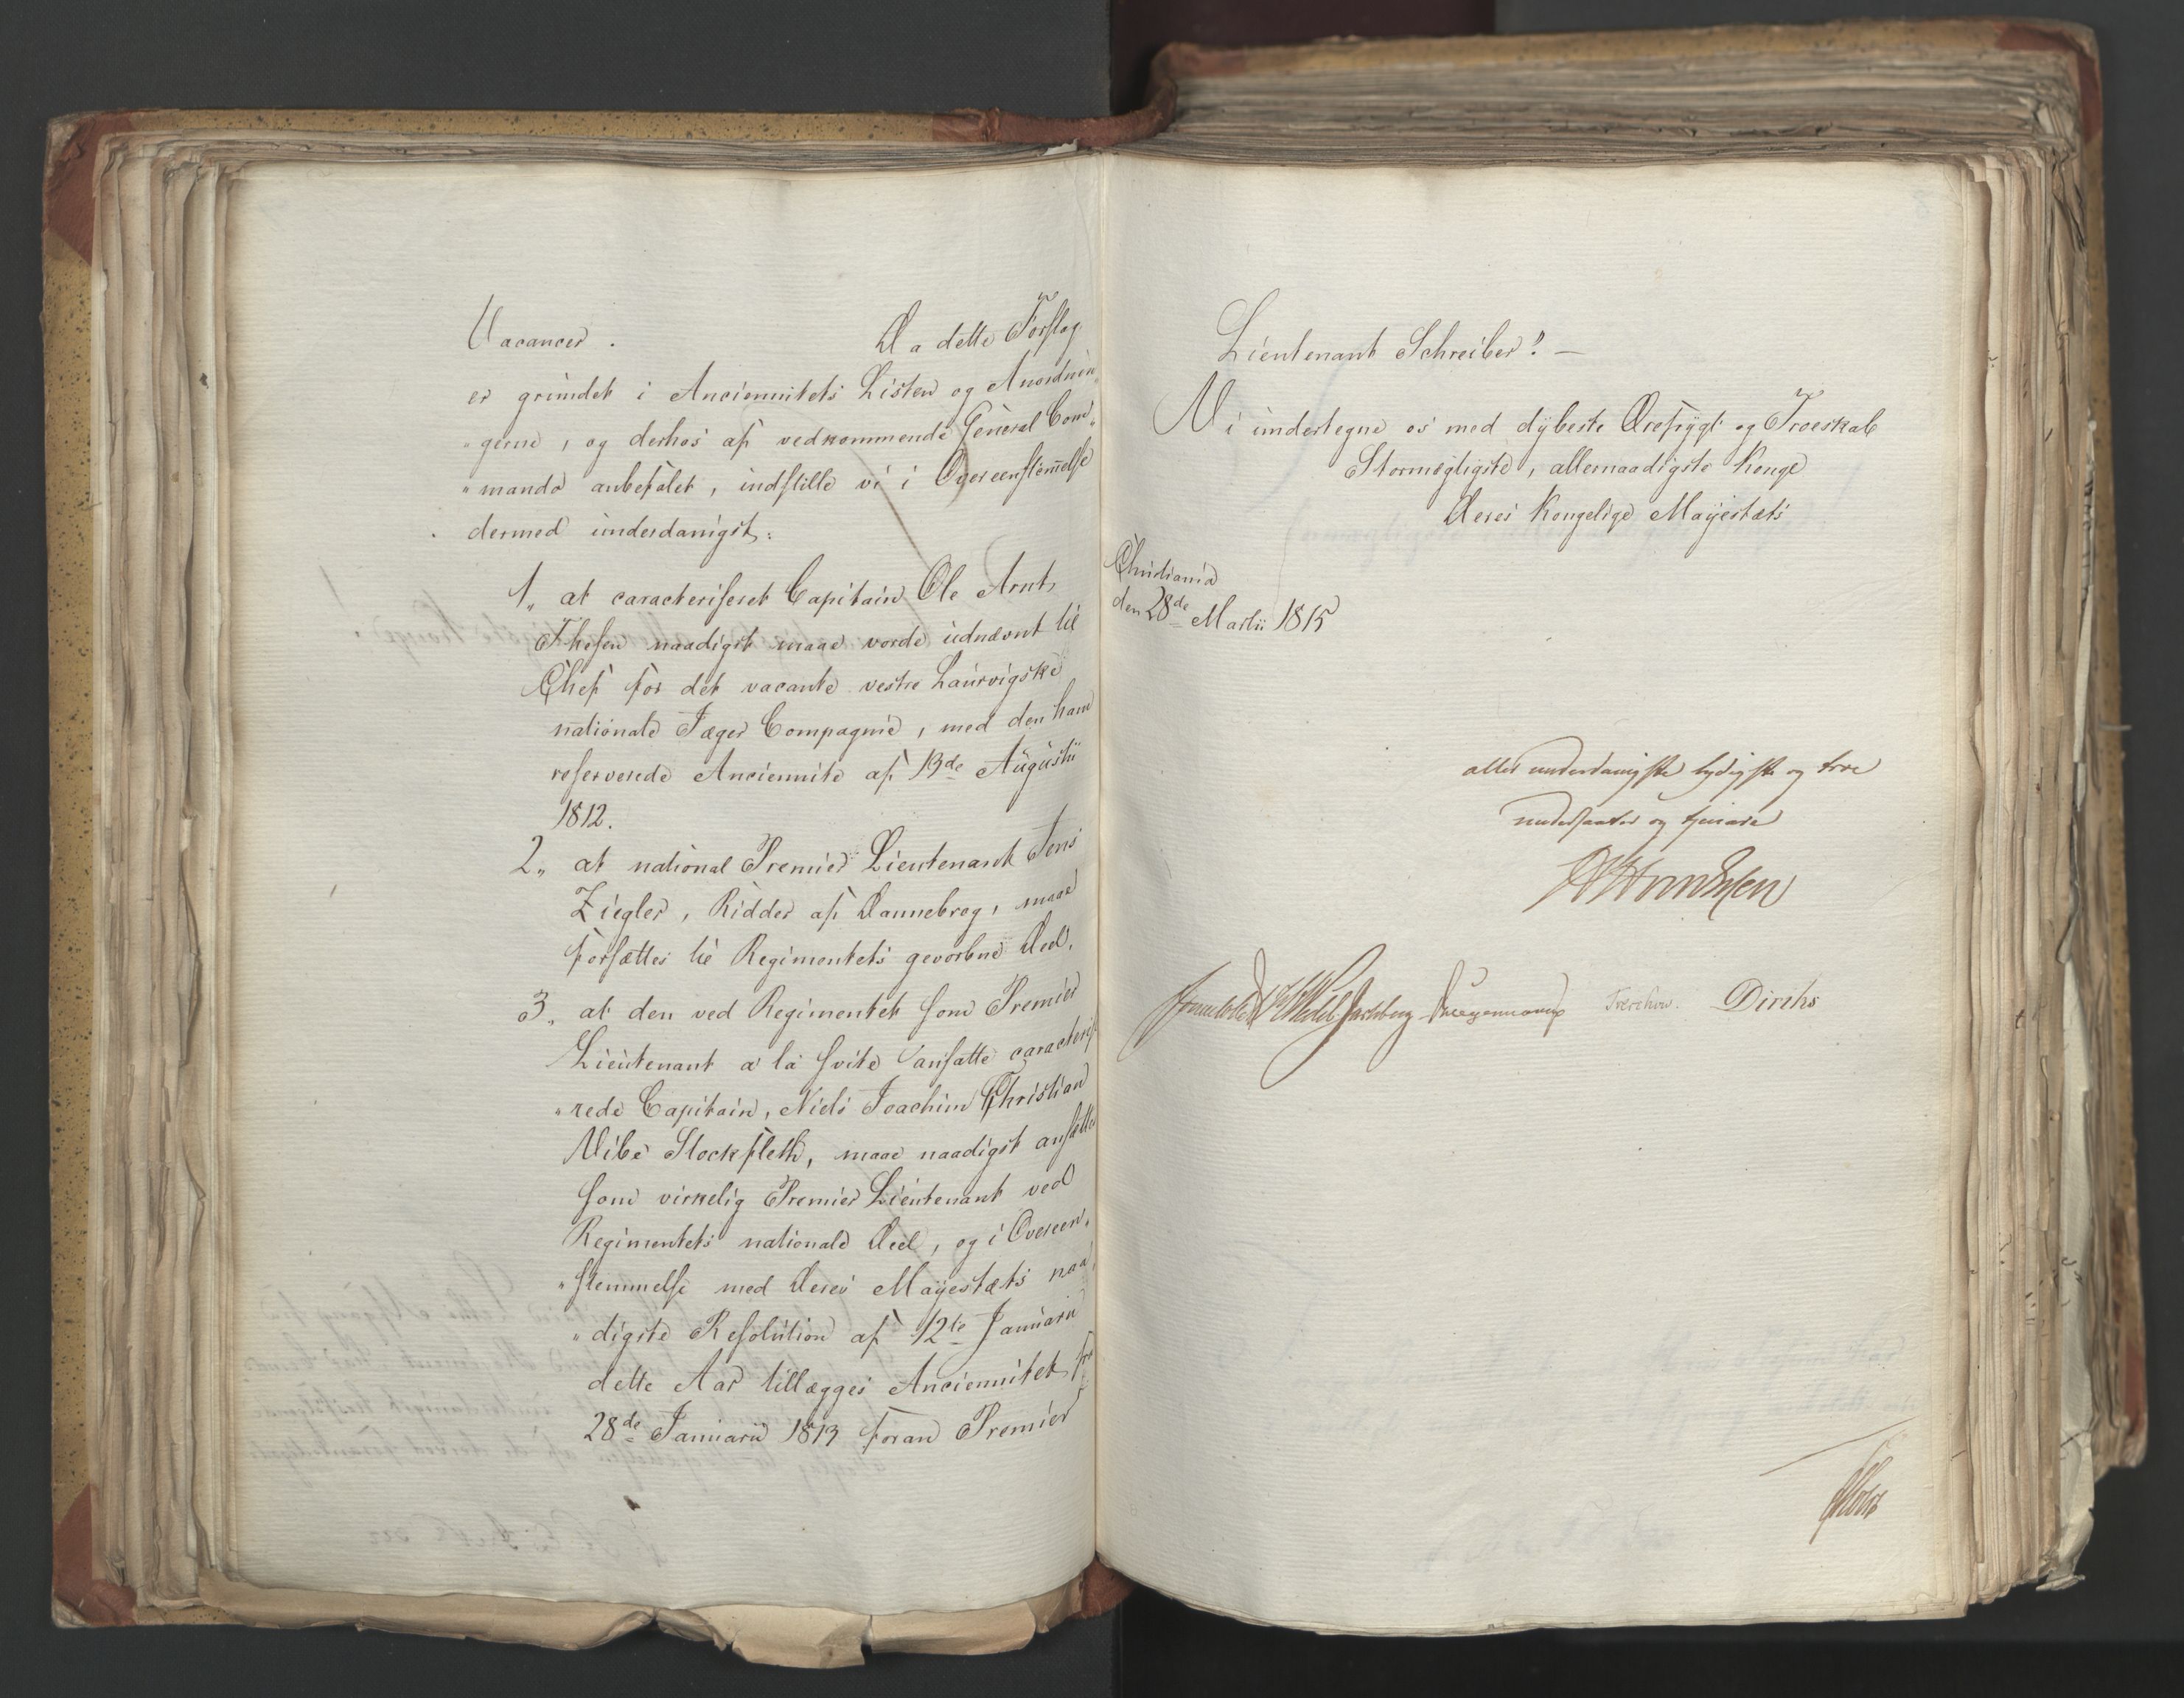 Vacancer. Da dette Forslag
er grundet i Anciennitets Listen og Anordnin„
„gerne, og derhos af vedkommende General Com„
„mando anbefalet, indstille vi i Overeenstem̅else
dermed underdanigst:
1„ at caracteriseret Capitain Ole Arnts
Thesen naadigst maae vorde udnævnt til
Chef for det vacante vestre Laurvigske
nationale Jæger Compagnie, med den ham
reserverede Anciennite af 13de Augustii
1812.
2„ at national Premier Lieutenant Jens
Ziegler, Ridder af Dannebrog, maae
forsættes til Regimentets gevorbne Deel.
3„ at den ved Regimentet som Premier
Lieutenant a la svite ansatte caracteris
„rede Capitain, Niels Joachim Christian
Vibe Stockfleth, maae naadigst ansættes
som virkelig Premier Lieutenant ved
Regimentets nationale Deel, og i Overeen„
„stemmelse med Deres Mayestæts naa„
„digste Resolution af 12te Januarii
dette Aar tillægges Anciennitet fra
28de Januarii 1813 foran Premier
Lieutenant Schreiber". —
Vi undertegne os med dybeste Ærefrygt og Troeskab
Stormægtigste, allernaadigste Konge
Deres Kongelige Mayestæts
Christiania
den 28de Martii 1815
aller underdanigste lydigste og troe
undersaatter og tjenere
Sommerhielm Wedel Jarlsberg Treschow. Diriks